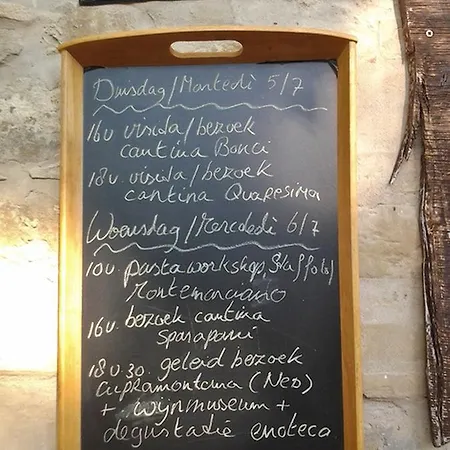 Dinsdag/Martedì 5/7
16u visida/bezoek
cantina Bonci
18u. visida/bezoek
cantina Quaresima
Woensdag/Mercoledì 6/7
10u. pasta workshop,
Montemarciano
16u. bezoek cantina
Sparapani
18u.30. geleid bezoek
Cupramontana (Ned)
+ wijnmuseum +
degustatie enoteca